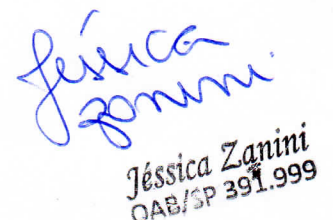 Jéssica
Zanini
Jéssica Zanini
OAB/SP 391.999